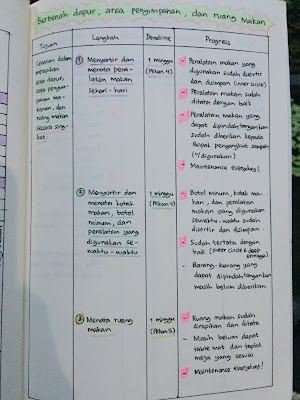 Berbenah dapur, area penyimpanan, dan ruang makan
Tujuan
Langkah
Deadline
Progress
Catatan dalam
merapikan
area dapur,
area penyim-
panan ma-
kanan, dan
ruang makan
secara sing-
kat.
① Menyortir dan
menata pera-
latan makan
sehari-hari
1 minggu
(Pekan 4)
- Peralatan makan yang
digunakan sudah disortir
dan disimpan (inner circle)
- Peralatan makan sudah
ditata dengan baik
- Peralatan makan yang
dapat dipindahtangankan
sudah diberikan kepada
Bapak pengangkut sampah
(u/ digunakan)
- Maintenance everyday!
② Menyortir dan
menata kotak
makan, botol
minum, dan
peralatan yang
digunakan se-
waktu-waktu
1 minggu
(Pekan 4)
- Botol minum, kotak ma-
kan, dan peralatan
makan yang digunakan
sewaktu-waktu sudah
disortir dan disimpan.
- Sudah tertata dengan
baik (outer circle &
deep storage)
- Barang-barang yang
dapat dipindahtangankan
masih belum diberikan
③ Menata ruang
makan
1 minggu
(Pekan 5)
- Ruang makan sudah
dirapikan dan ditata
- Masih belum dapat
table mat dan taplak
meja yang sesuai
- Maintenance everyday!